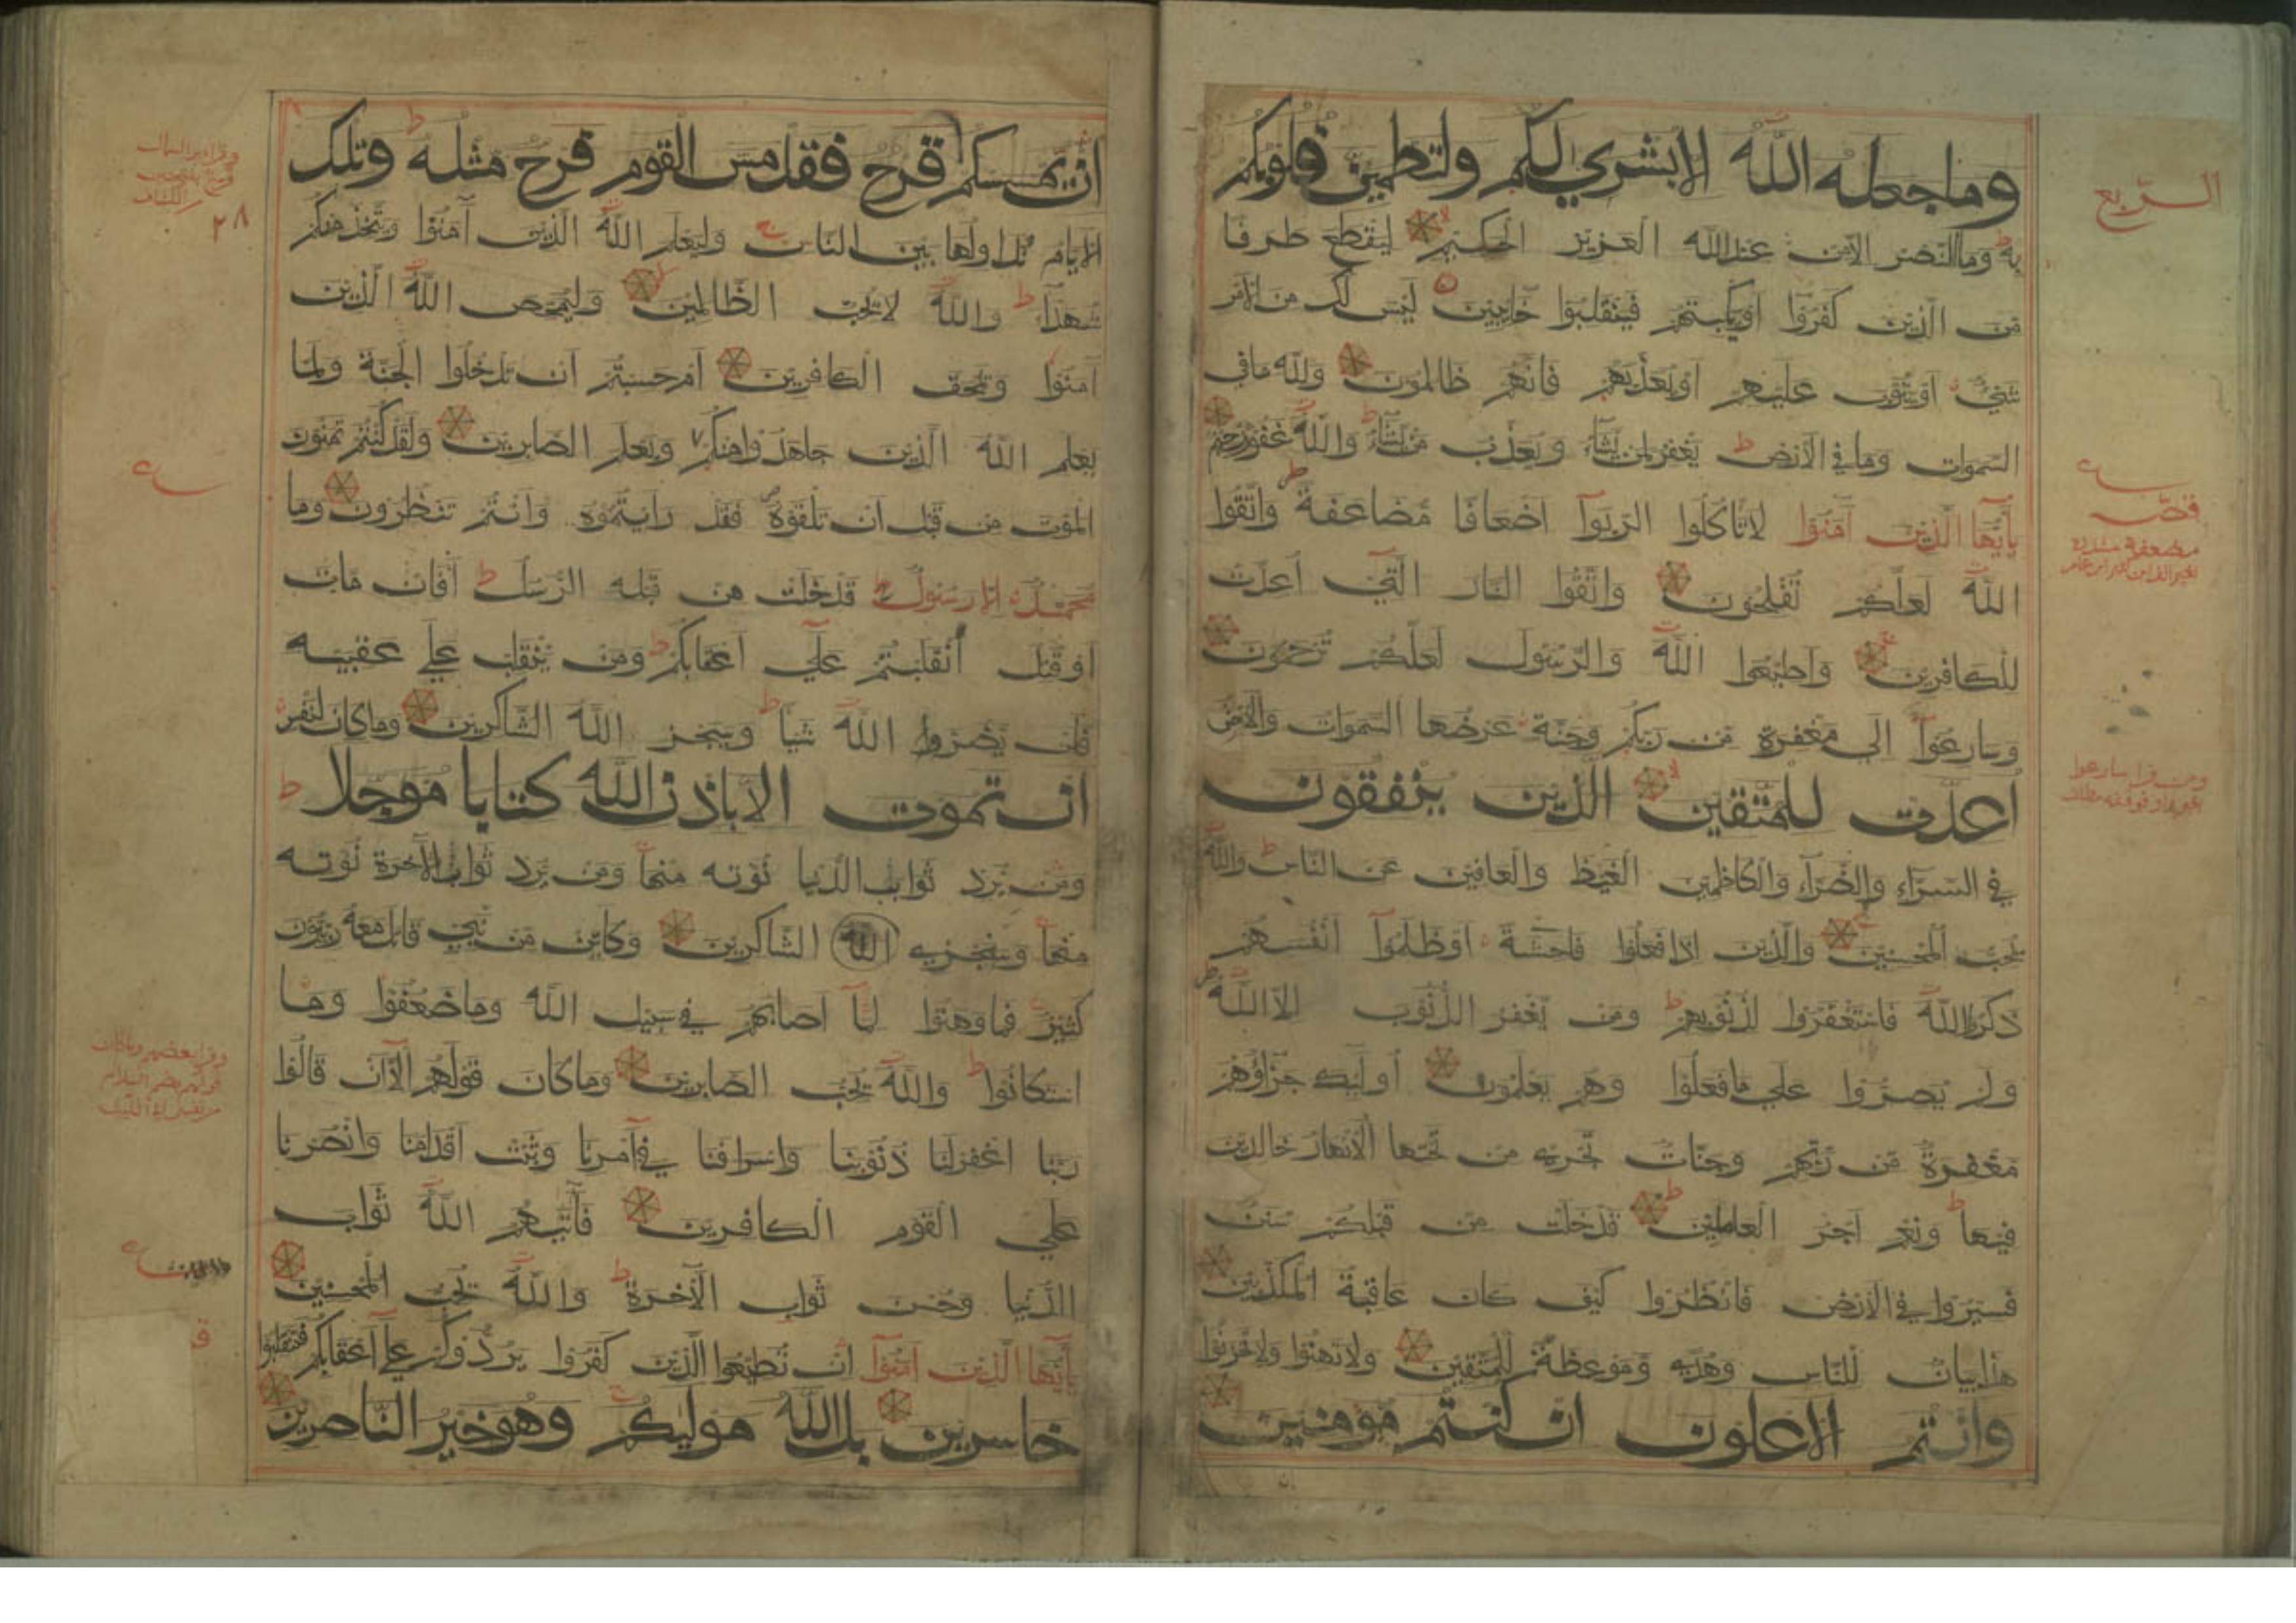 وما جعله الله الا بشري لكم ولتطمين قلوبكم
به وما النصر الا من عند الله العزيز الحكيم ليقطع طرفا
من الذين كفروا او يكبتهم فينقلبوا خايبين ليس لك من الامر
شيء او يتوب عليهم او يعذبهم فانهم ظالمون ولله ما في
السموات وما في الارض يغفر لمن يشاء ويعذب من يشاء والله غفور رحيم
يأيها الذين آمنوا لا تاكلوا الربوآ اضعافا مضاعفة واتقوا
الله لعلكم تفلحون واتقوا النار التي أعدت
للكافرين واطيعوا الله والرسول لعلكم ترحمون
وسارعوآ الى مغفرة من ربكم وجنة عرضها السموات والارض
أعدت للمتقين الذين ينفقون
في السرآء والضرآء والكاظمين الغيظ والعافين عن الناس والله
يحب المحسنين والذين اذا فعلوا فاحشة او ظلموآ انفسهم
ذكروا الله فاستغفروا لذنوبهم ومن يغفر الذنوب الا الله
ولم يصروا علي ما فعلوا وهم يعلمون أوليك جزاؤهم
مغفرة من ربهم وجنات تجري من تحتها الانهار خالدين
فيها ونعم اجر العاملين قد خلت من قبلكم سنن
فسيروا في الارض فانظروا كيف كان عاقبة المكذبين
هذا بيان للناس وهدي وموعظة للمتقين ولا تهنوا ولا تحزنوا
وانتم الاعلون ان كنتم مومنين
الربع
قصة
ان يمسسكم قرح فقد مس القوم قرح مثله وتلك
الايام نداولها بين الناس وليعلم الله الذين آمنوا ويتخذ منكم
شهدآء والله لا يحب الظالمين وليمحص الله الذين
آمنوا ويمحق الكافرين ام حسبتم ان تدخلوا الجنة ولما
يعلم الله الذين جاهدوا منكم ويعلم الصابرين ولقد كنتم تمنون
الموت من قبل ان تلقوه فقد رايتموه وانتم تنظرون وما
محمد الا رسول قد خلت من قبله الرسل أفان مات
او قتل انقلبتم علي اعقابكم ومن ينقلب علي عقبيه
فلن يضروا الله شيأ وسيجزي الله الشاكرين وما كان لنفس
ان تموت الا باذن الله كتابا موجلا
ومن يرد ثواب الدنيا نوته منها ومن يرد ثواب الآخرة نوته
منها وسيجزي الله الشاكرين وكاين من نبي قاتل معه ربيون
كثير فما وهنوا لمآ اصابهم في سبيل الله وما ضعفوا وما
استكانوا والله يحب الصابرين وما كان قولهم الآ ان قالوا
ربنا اغفر لنا ذنوبنا واسرافنا في امرنا وثبت اقدامنا وانصرنا
علي القوم الكافرين فآتيهم الله ثواب
الدنيا وحسن ثواب الآخرة والله يحب المحسنين
يأيها الذين آمنوآ ان تطيعوا الذين كفروا يردوكم علي اعقابكم فتنقلبوا
خاسرين بل الله موليكم وهو خير الناصرين
٢٨